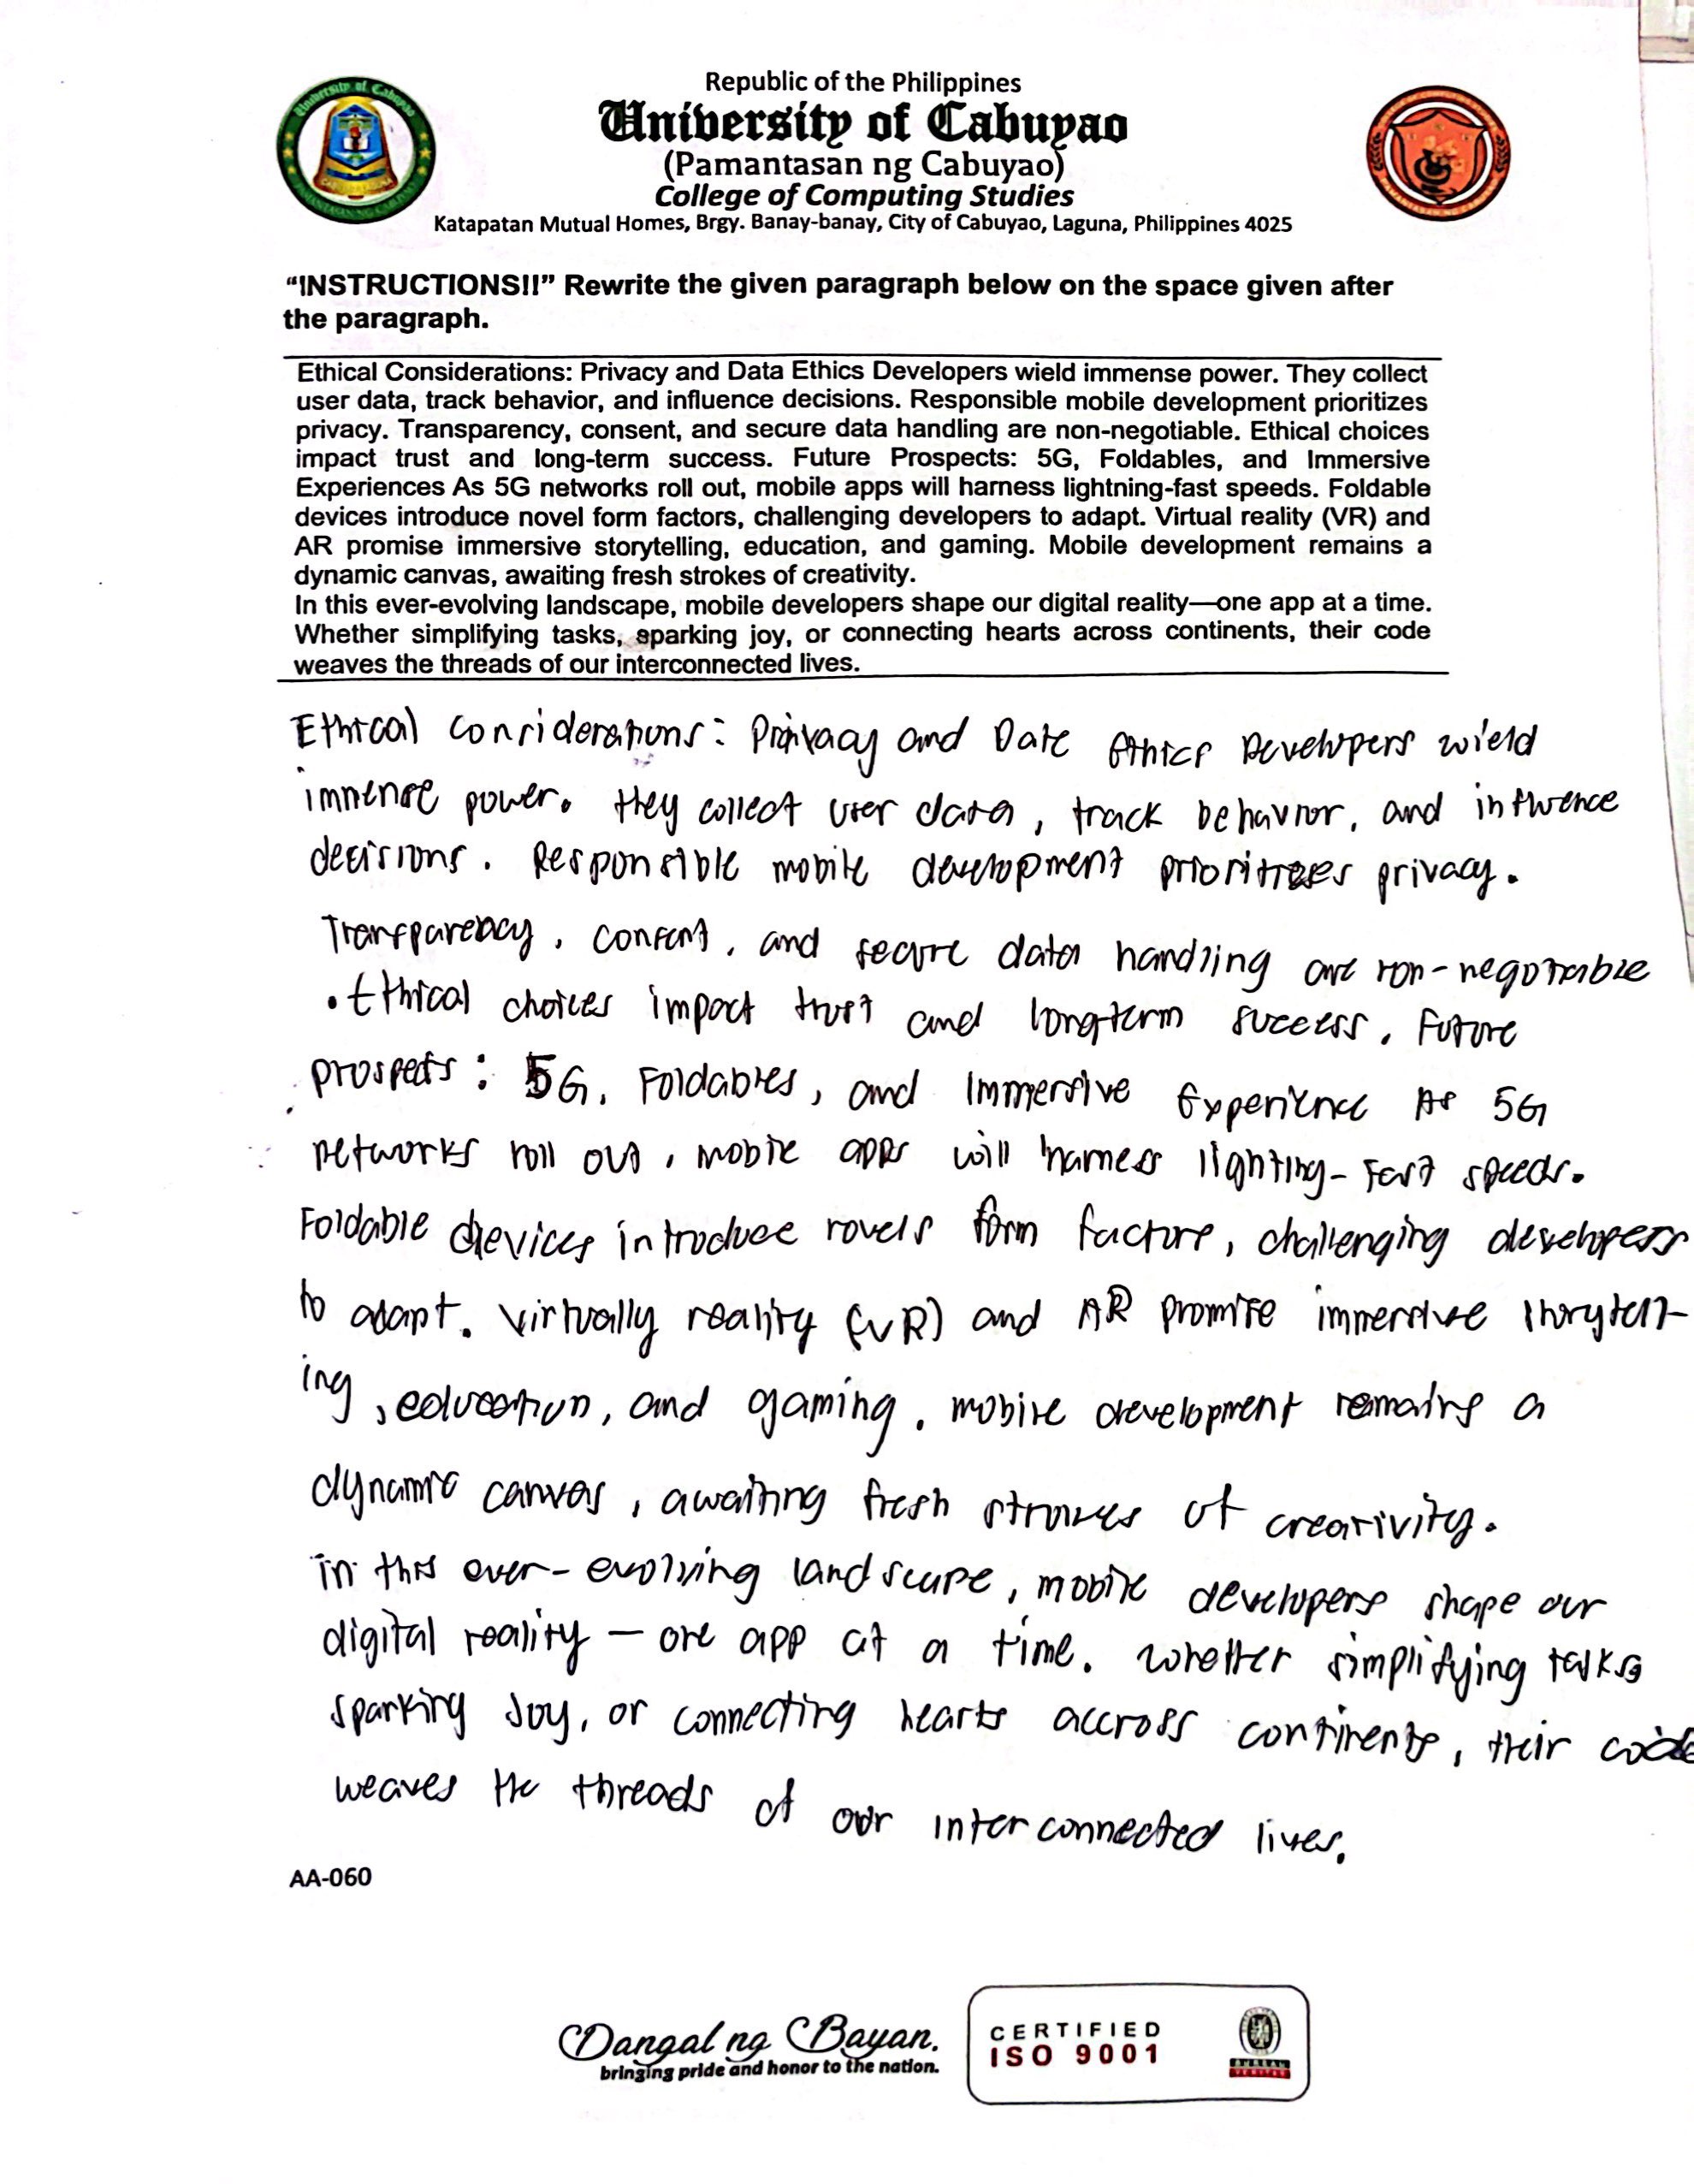 Republic of the Philippines
University of Cabuyao
(Pamantasan ng Cabuyao)
College of Computing Studies
Katapatan Mutual Homes, Brgy. Banay-banay, City of Cabuyao, Laguna, Philippines 4025
“INSTRUCTIONS!!” Rewrite the given paragraph below on the space given after
the paragraph.
Ethical Considerations: Privacy and Data Ethics Developers wield immense power. They collect
user data, track behavior, and influence decisions. Responsible mobile development prioritizes
privacy. Transparency, consent, and secure data handling are non-negotiable. Ethical choices
impact trust and long-term success. Future Prospects: 5G, Foldables, and Immersive
Experiences As 5G networks roll out, mobile apps will harness lightning-fast speeds. Foldable
devices introduce novel form factors, challenging developers to adapt. Virtual reality (VR) and
AR promise immersive storytelling, education, and gaming. Mobile development remains a
dynamic canvas, awaiting fresh strokes of creativity.
In this ever-evolving landscape, mobile developers shape our digital reality—one app at a time.
Whether simplifying tasks, sparking joy, or connecting hearts across continents, their code
weaves the threads of our interconnected lives.
Ethical Considerations: Privacy and Date Ethics Developers wield
immense power. they collect user data, track behavior, and influence
decisions. Responsible mobile development prioritizes privacy.
Transparency, consent, and secure data handling are non-negotiable
. Ethical choices impact trust and long-term success. Future
prospects: 5G, Foldables, and Immersive Experience As 5G
networks roll out, mobile apps will harness lighting-fast speeds.
Foldable devices introduce novels form factors, challenging developers
to adapt. Virtually reality (VR) and AR promise immersive storytell-
ing, education, and gaming. mobile development remains a
dynamic canvas, awaiting fresh strokes of creativity.
in this ever-evolving landscape, mobile developers shape our
digital reality — one app at a time. Whether simplifying tasks,
sparking Joy, or connecting hearts accross continents, their code
weaves the threads of our interconnected lives.
AA-060
Dangal ng Bayan.
bringing pride and honor to the nation.
CERTIFIED
ISO 9001
BUREAU
VERITAS